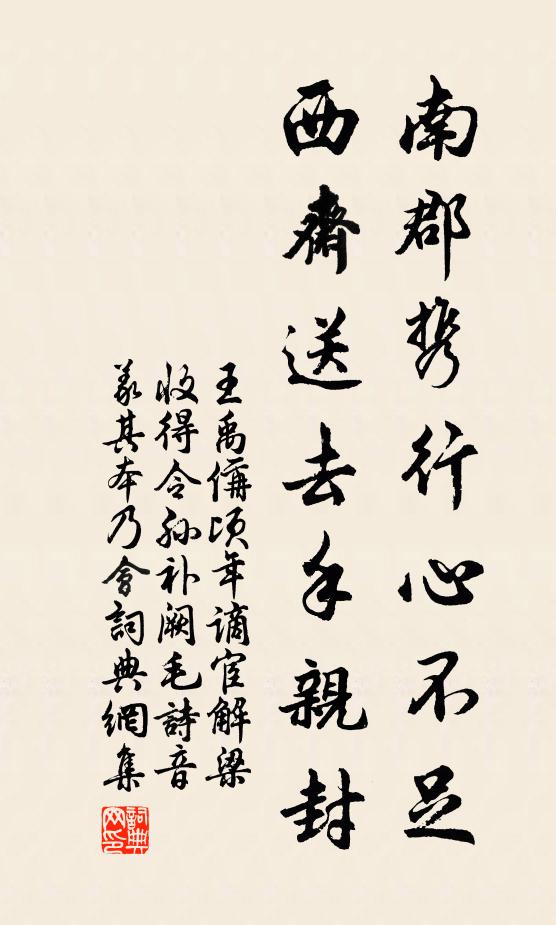 南郡携行心不足
西齋送去手親封
王禹偁頃年謫宦解梁
收得令孫补阙毛詩音
義其本乃會詞典網集
詞典网印